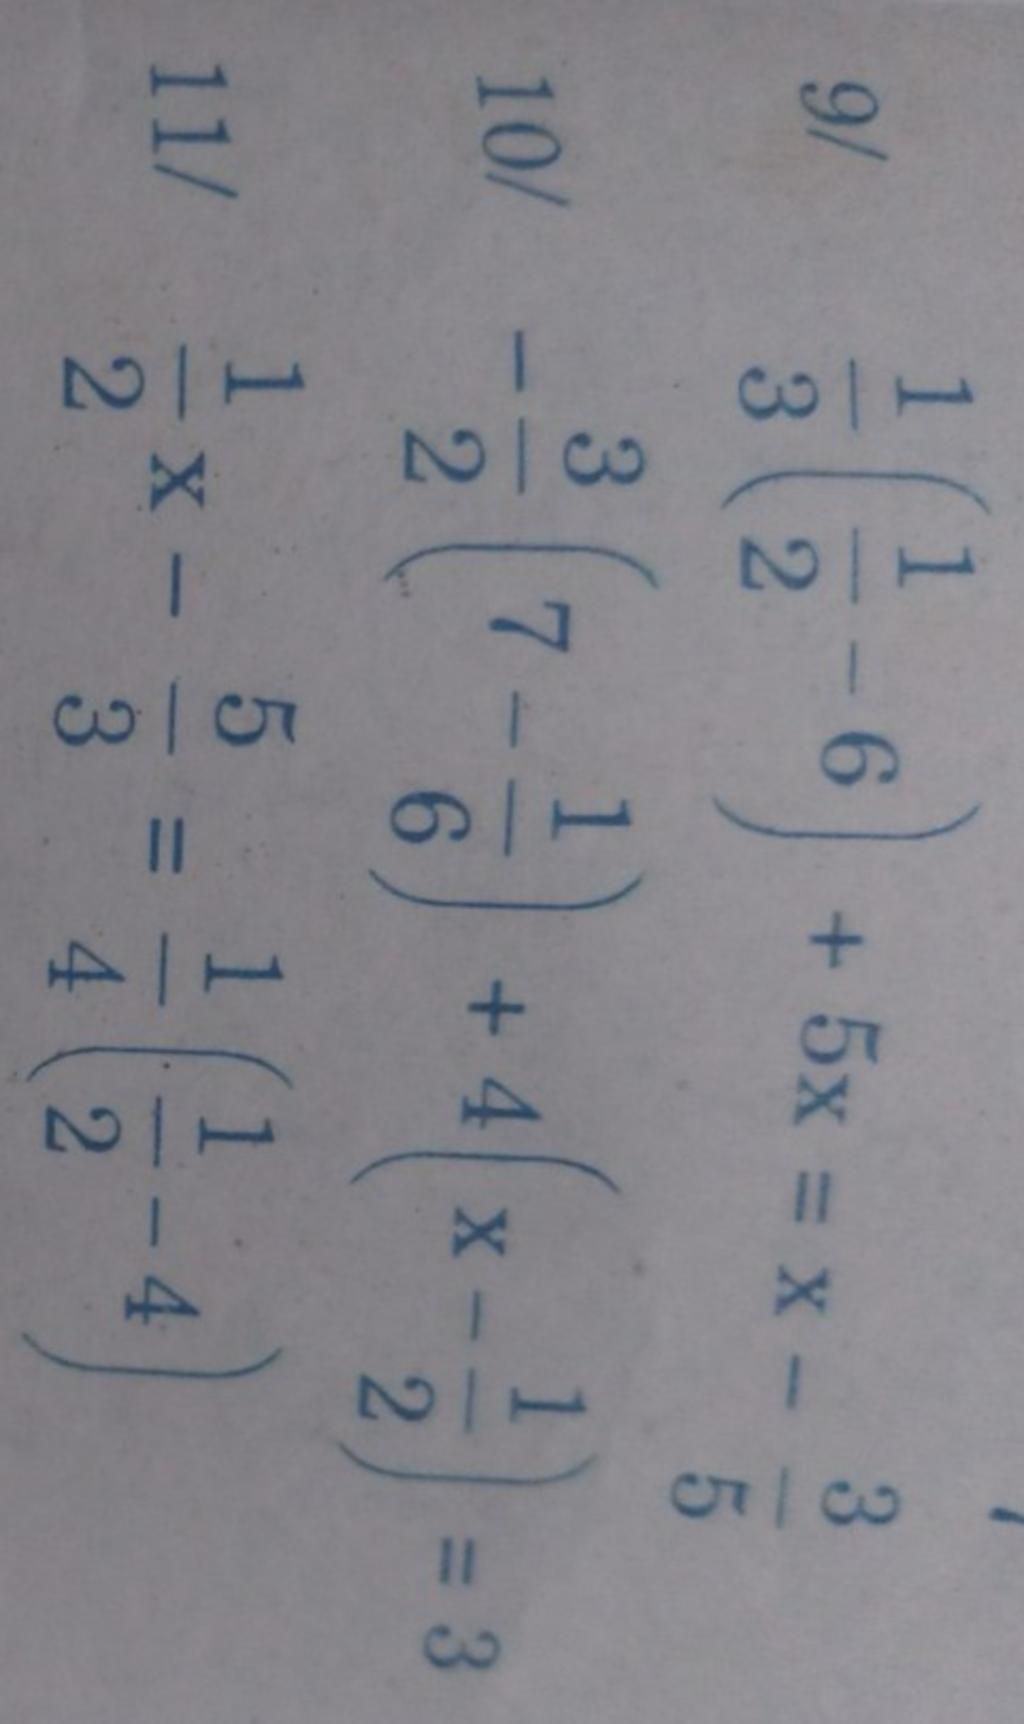 9/ 1/3 (1/2 - 6) + 5x = x - 3/5
10/ - 3/2 (7 - 1/6) + 4(x - 1/2) = 3
11/ 1/2 x - 5/3 = 1/4 (1/2 - 4)